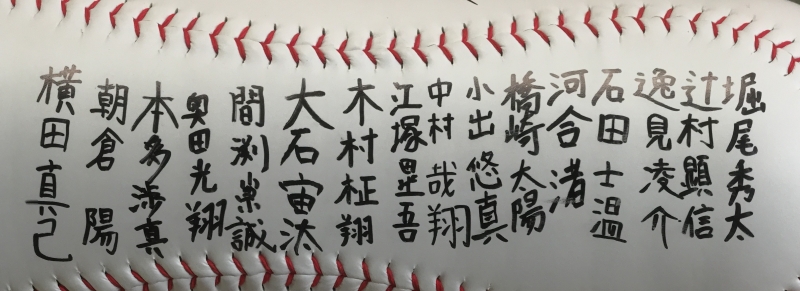 堀尾秀太
辻村顕信
逸見凌介
石田士温
河合渚
橋崎太陽
小出悠真
中村哉翔
江塚塁吾
木村柾翔
大石宙汰
間渕崇誠
奥田光翔
本多渉真
朝倉陽
横田真己